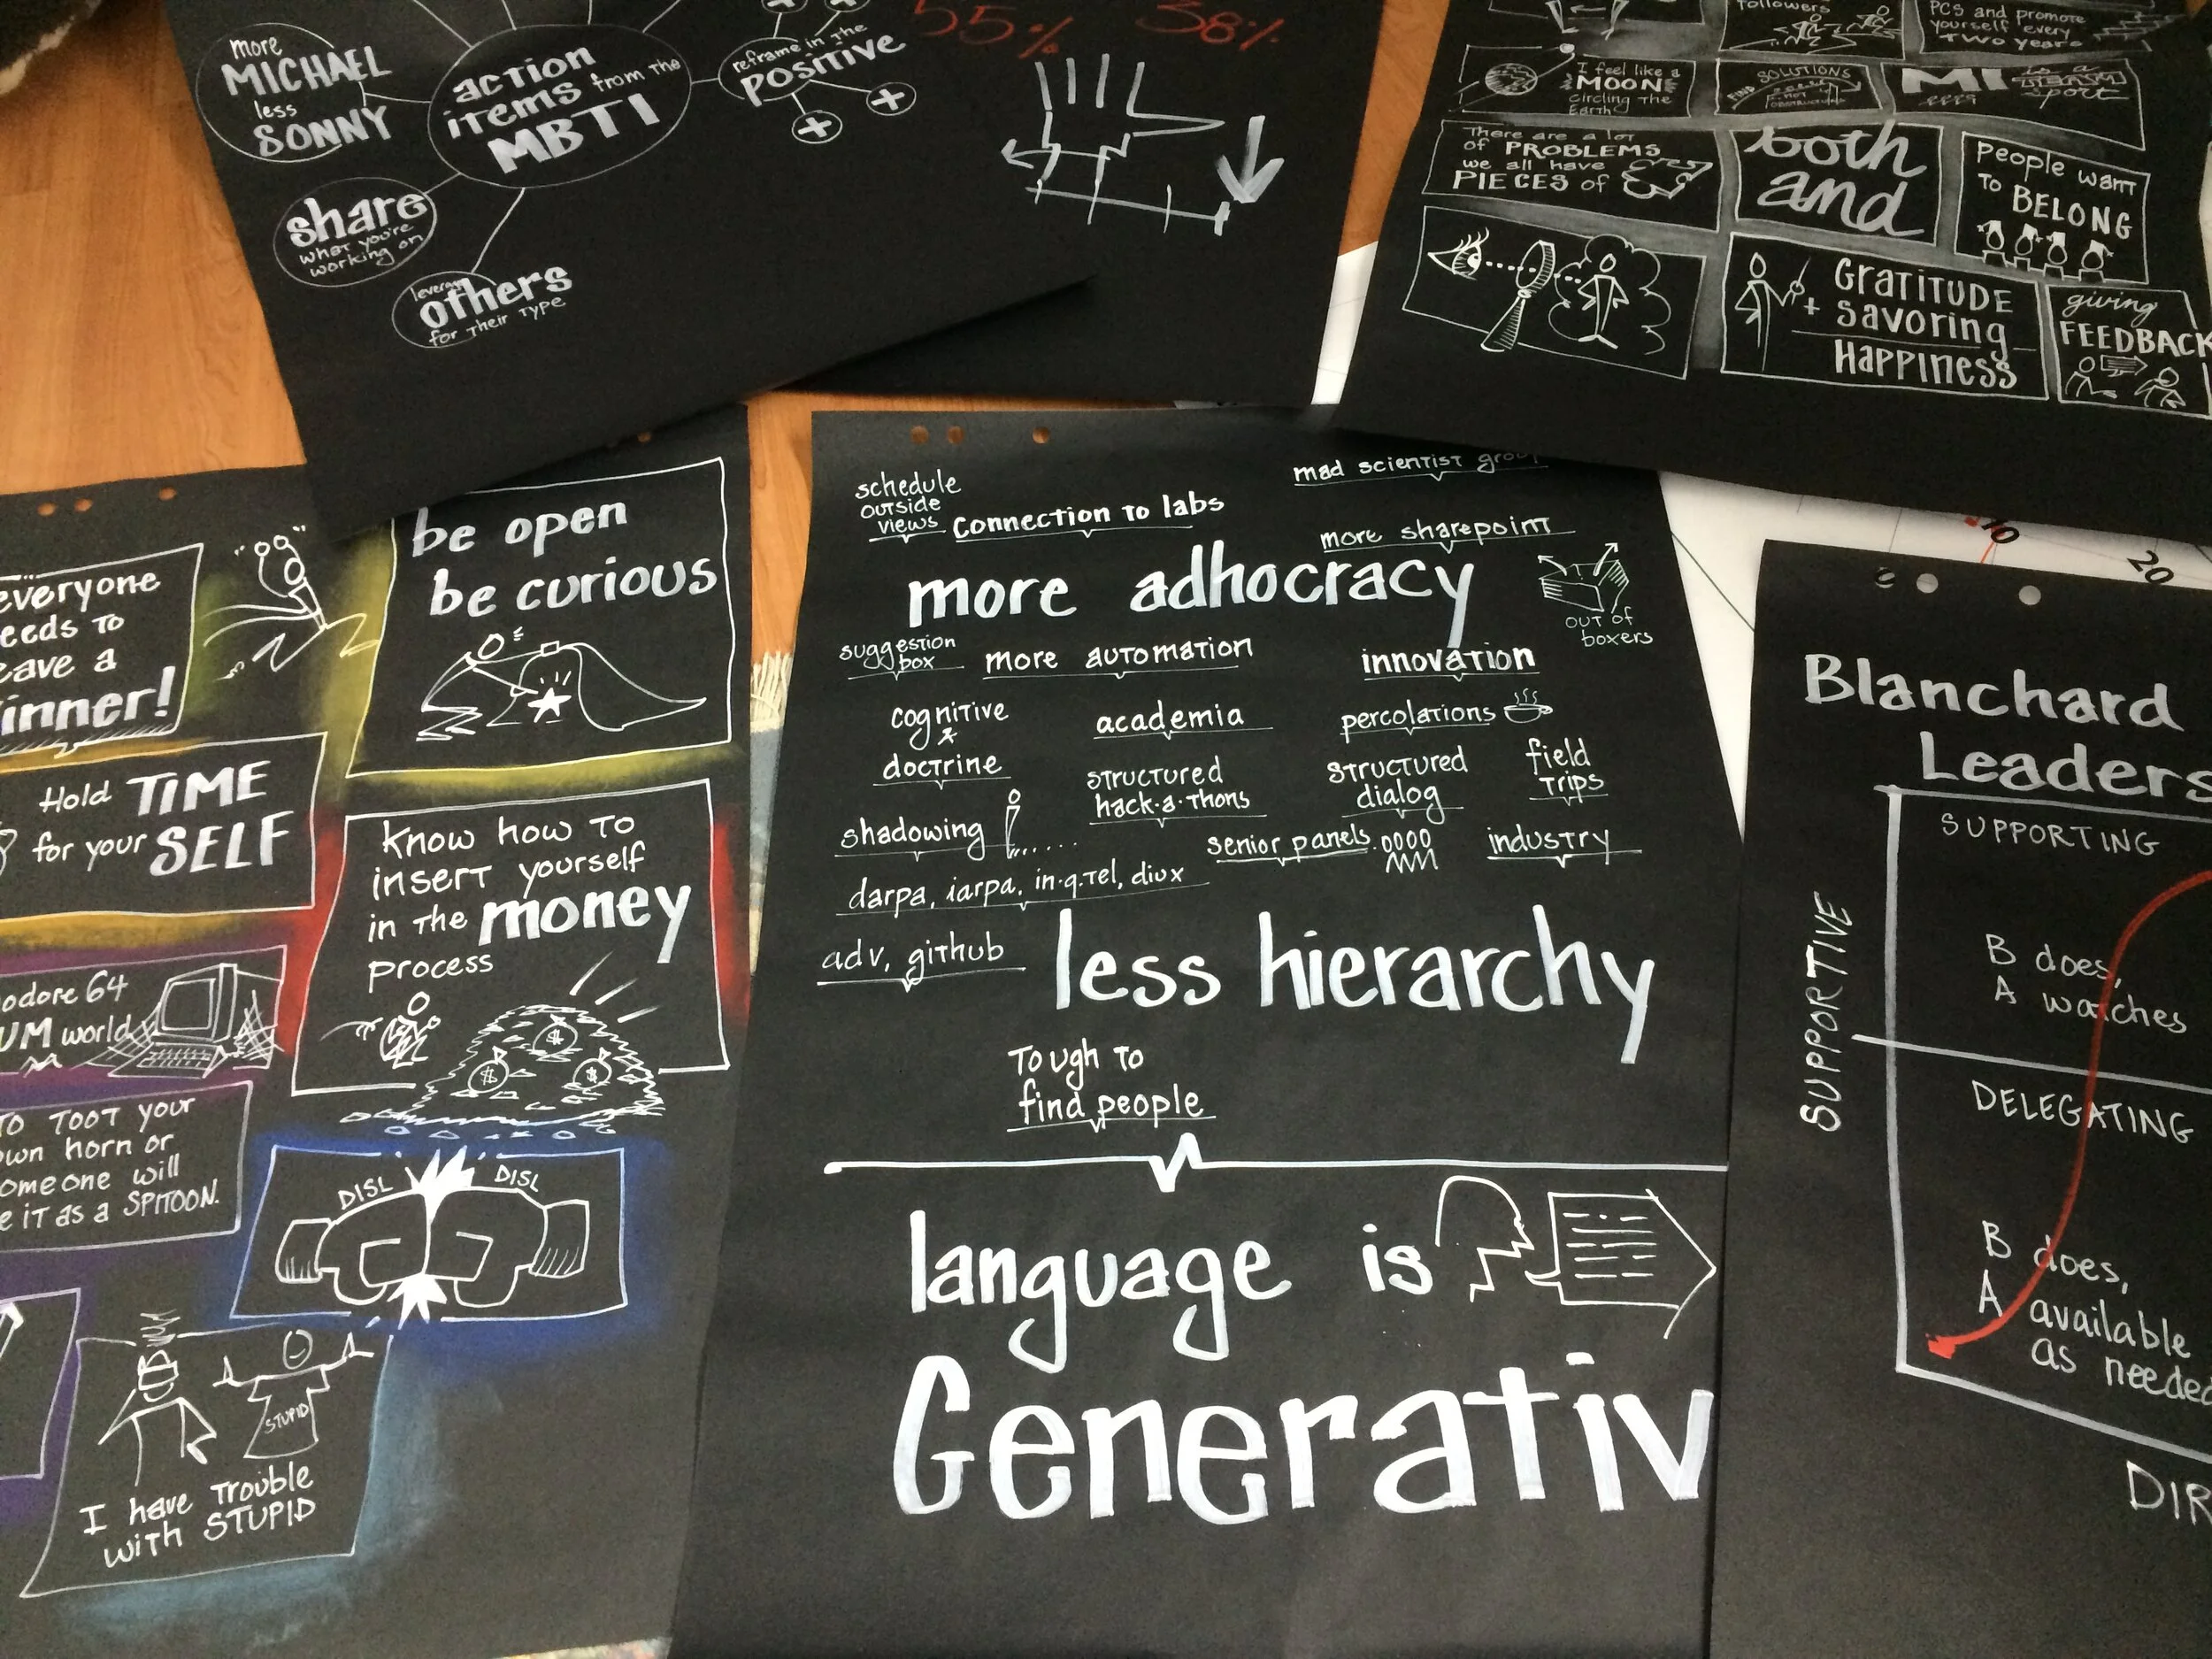 more
MICHAEL
less
SONNY
action
items from the
MBTI
reframe in the
POSITIVE
+
+
share
what you're
working on
others
for their type
55% 38%
followers
PCS and promote
yourself every
TWO years
I feel like a
MOON
circling the
Earth
FIND SOLUTIONS
NOT
is a
TEAM
sport
There are a lot
of PROBLEMS
we all have
PIECES of
both
and
People want
to BELONG
Gratitude
+ savoring
Happiness
giving
FEEDBACK
everyone
needs to
leave a
winner!
be open
be curious
Hold TIME
for your SELF
know how to
insert yourself
in the money
process
$
$
$
odore 64
UM world
TO TOOT your
own horn or
someone will
e it as a SPITOON.
DISL DISL
STUPID
I have trouble
with STUPID
schedule
outside
views
connection to labs
mad scientist group
more sharepoint
more adhocracy
out of
boxers
suggestion
box
more automation
innovation
cognitive
doctrine
academia
percolations
structured
hack·a·thons
structured
dialog
field
trips
shadowing
senior panels
industry
darpa, iarpa, in·q·tel, diux
adv, github
less hierarchy
Tough to
find people
language is
Generativ
10
20
Blanchard
Leaders
SUPPORTING
SUPPORTIVE
B does,
A watches
DELEGATING
B does,
A available
as needed
DIR